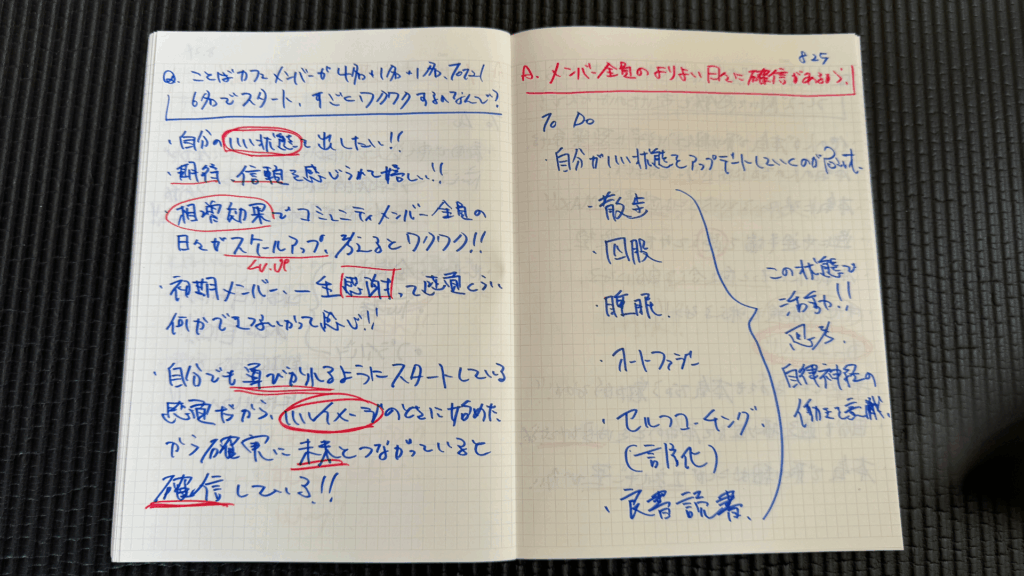 Q. ことばカフェメンバーが4名+1名+1名、Total
6名でスタート。すごくワクワクするのなんで?
・自分のいい状態を出したい!!
・期待、信頼を感じられて嬉しい!!
・相乗効果でコミュニティメンバー全員の
日々がスケールアップ、考えるとワクワク!!
Lv.UP
・初期メンバー、一生感謝って感覚くらい
何かできないかって感じ!!
・自分でも喜びがれるようにスタートしている
感覚だから、いいイメージのもとに始めた
から確実に未来とつながっていると
確信している!!
825
A. メンバー全員のよりよい日々に確信があるから。
To Do
・自分がいい状態をアップデートしていくのが
・散歩
・図服
・睡眠
・オートファジー
・セルフコーチング
(言語化)
・良書読書
この状態で
活動!!
思考
自律神経の
働きを意識